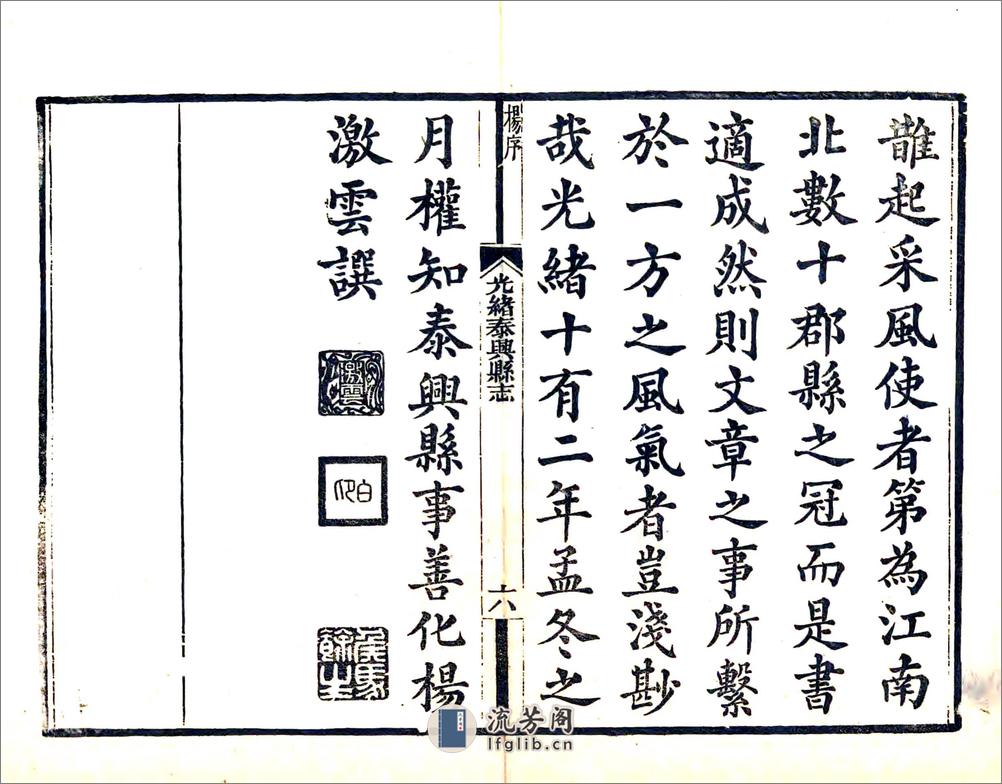 鵲起采風使者第為江南
北數十郡縣之冠而是書
適成然則文章之事所繫
於一方之風氣者豈淺尠
哉光緒十有二年孟冬之
楊序
光緒泰興縣志
六
月權知泰興縣事善化楊
激雲譔
流芳阁
lfglib.cn